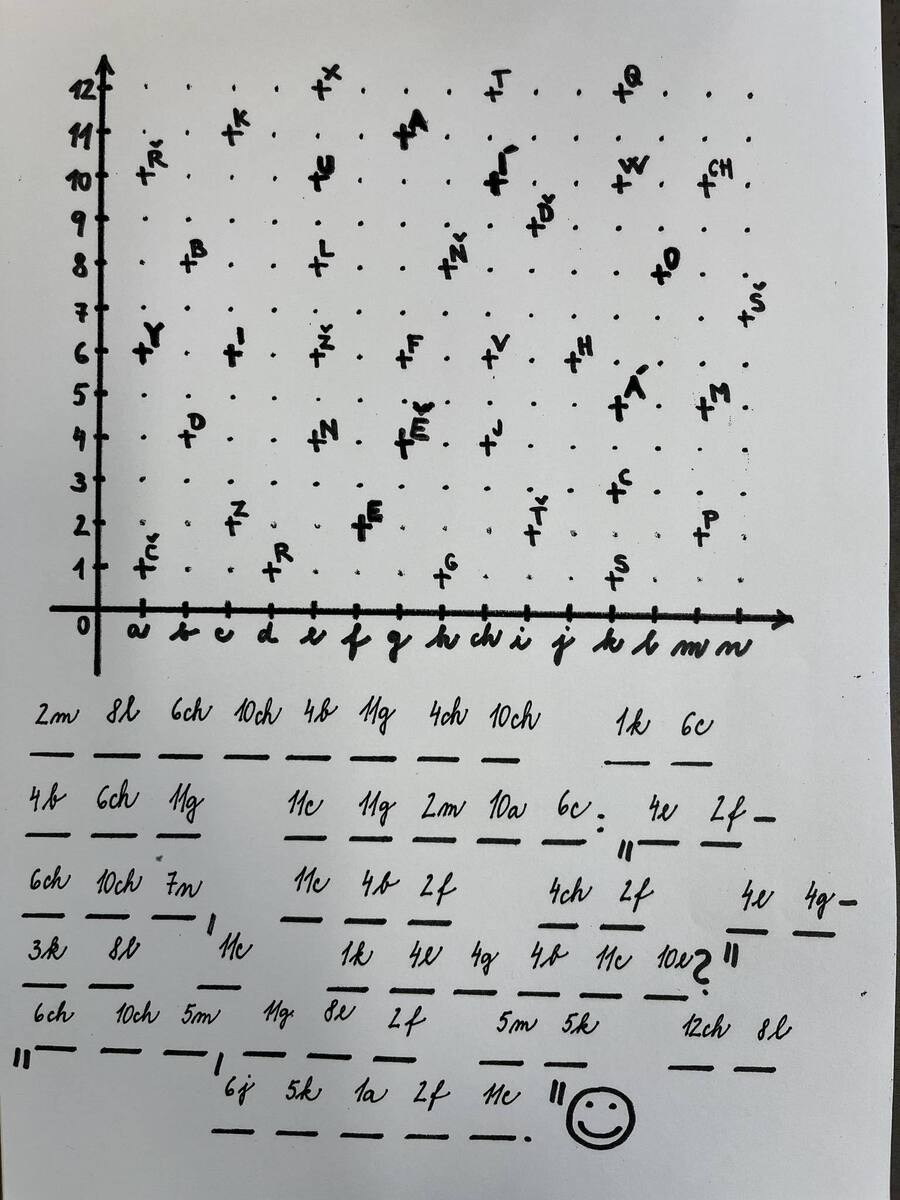 12 X T Q
11 K A
10 Ř U Í W CH
9 Ď
8 B L Ň O
7 Š
6 Y I Ž F V H
5 Á M
4 D N Ě J
3 C
2 Z E Ť P
1 Č R G S
0 a b c d e f g h ch i j k l m n
2m 8l 6ch 10ch 4b 11g 4ch 10ch 1k 6c
4b 6ch 11g 11c 11g 2m 10a 6c: "4e 2f-
6ch 10ch 7n, 11c 4b 2f 4ch 2f 4e 4g-
3k 8l 11c 1k 4e 4g 4b 11c 10e?"
"6ch 10ch 5m, 11g 8e 2f 5m 5k 12ch 8l
6j 5k 1a 2f 11c."